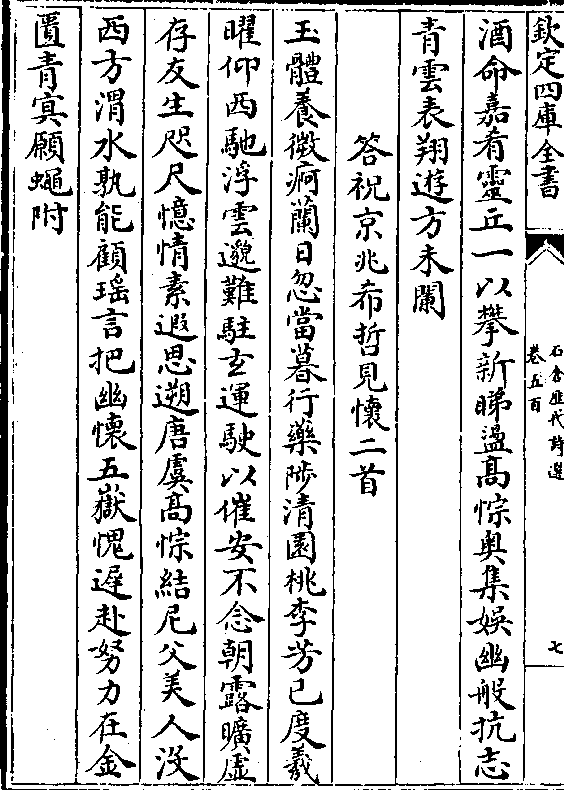 欽定四庫全書
石倉歷代詩選
卷五百
七
酒命嘉肴靈丘一以攀新睇盪高悰奥集娛幽般抗志
青雲表翔遊方未闌
答祝京兆希哲見懷二首
玉體養微痾蘭日忽當暮行藥陟清園桃李芳已度羲
曜仰西馳浮雲邈難駐玄運駛以催安不念朝露曠虛
存友生咫尺憶情素遐思遡唐虞高悰結尼父美人沒
西方渭水孰能顧瑶言把幽懷五嶽愧遲赴努力在金
匱青冥願蠅附